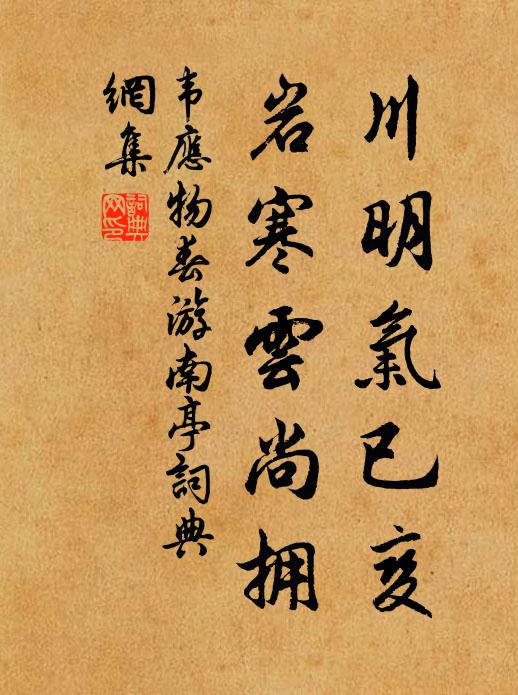 川明氣已变
岩寒雲尚拥
韦應物春游南亭詞典
網集
詞典网印